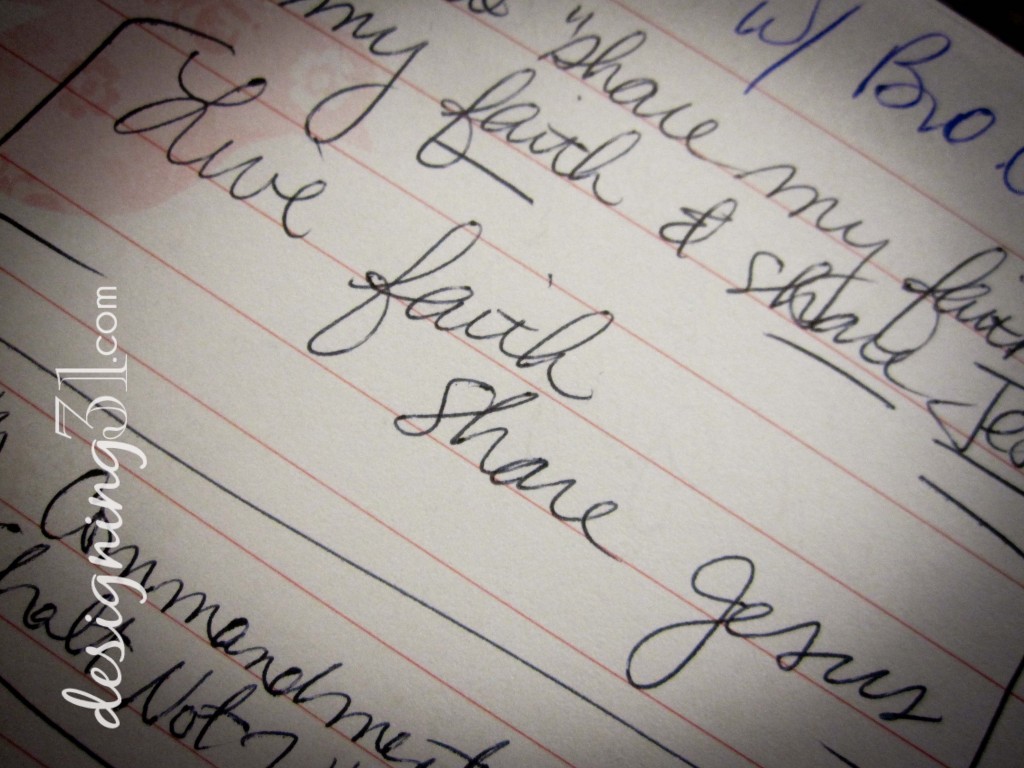 w/ Bro
"share my faith
my faith & share Jes
Live
faith
share
Jesus
Commandment
halt Not
designing31.com